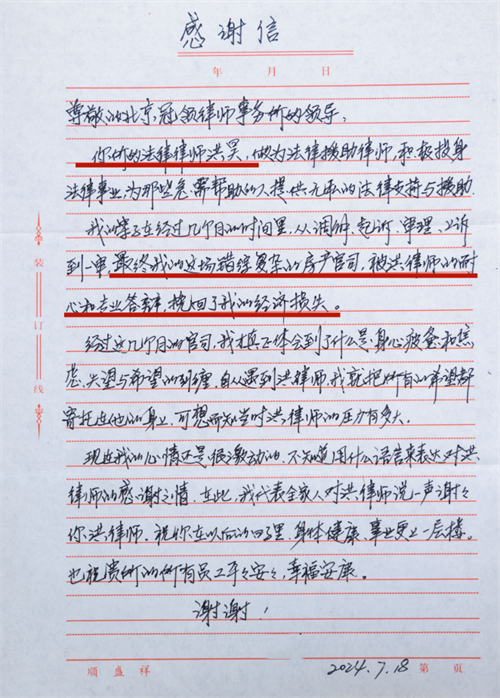 感谢信
年 月 日
尊敬的北京冠领律师事务所的领导：
你所的法律律师洪昊，做为法律援助律师，积极投身
法律事业，为那些急需帮助的人提供无私的法律支持与援助
我的案子在经过几个月的时间里，从调解、起诉、审理、上诉
到一审，最终我的这场错综复杂的房产官司，被洪律师的耐
心和专业答辩，挽回了我的经济损失。
经过这几个月的官司，我才真正体会到了什么是身心疲惫和焦
虑，失望与希望的纠缠，自从遇到洪律师，我就把所有的希望都
寄托在他的身上，可想而知当时洪律师的压力有多大。
现在我的心情还是很激动的，不知道用什么语言来表达对洪
律师的感谢之情，在此，我代表全家人对洪律师说一声谢谢
你洪律师，祝你在以后的日子里，身体健康、事业更上一层楼。
也祝贵所的所有员工平々安々，幸福安康。
谢谢！
2024.7.18
装订线
顺盛祥 第 页